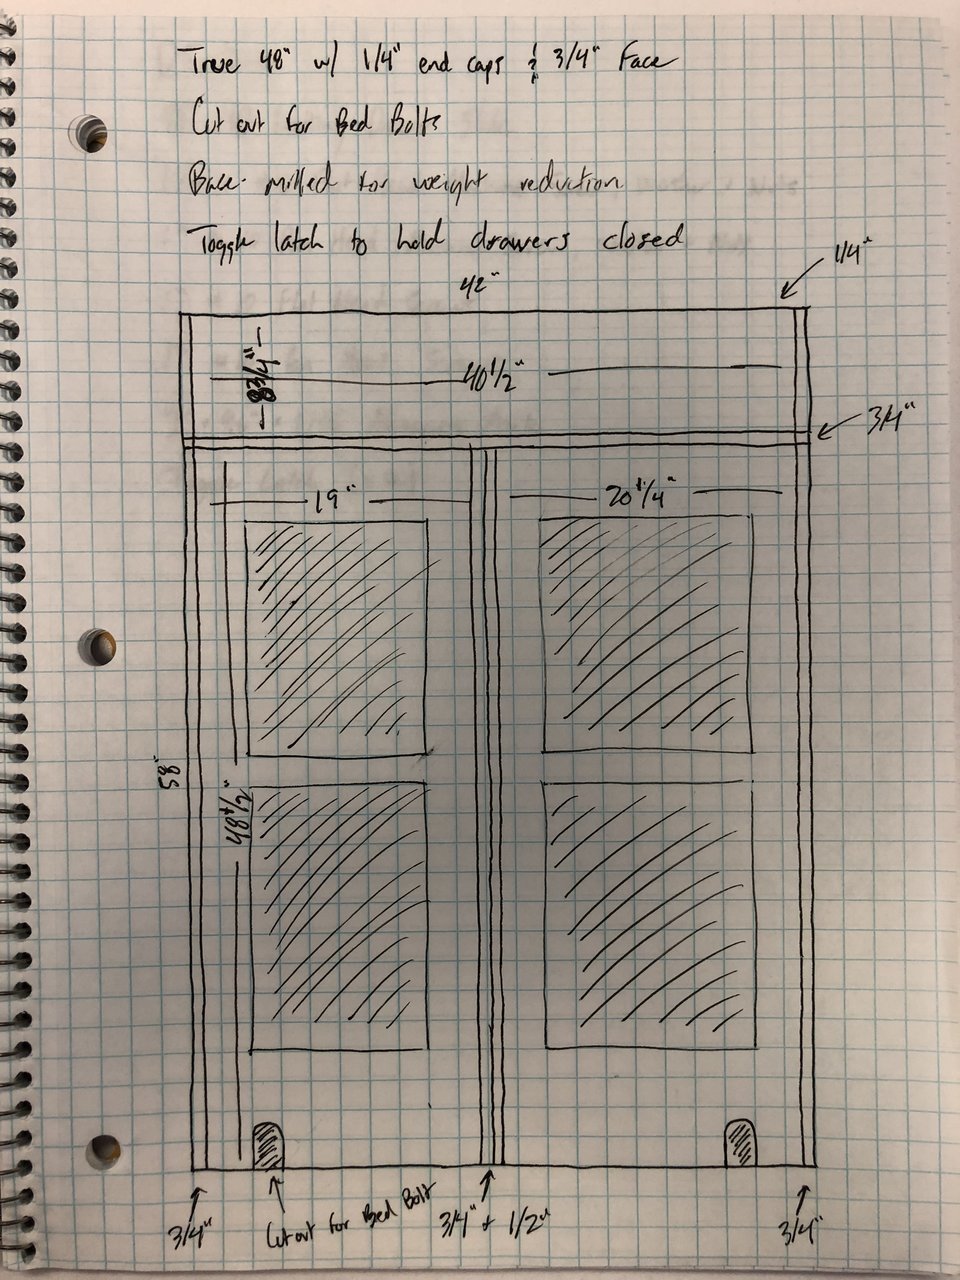 True 48" w/ 1/4" end caps & 3/4" Face
Cut out for Bed Bolts
Base milled for weight reduction
Toggle latch to hold drawers closed
42"
1/4"
8 3/4"
40 1/2"
3/4"
19"
20 1/4"
58"
48 1/2"
3/4"
Cut out for Bed Bolt
3/4" + 1/2"
3/4"